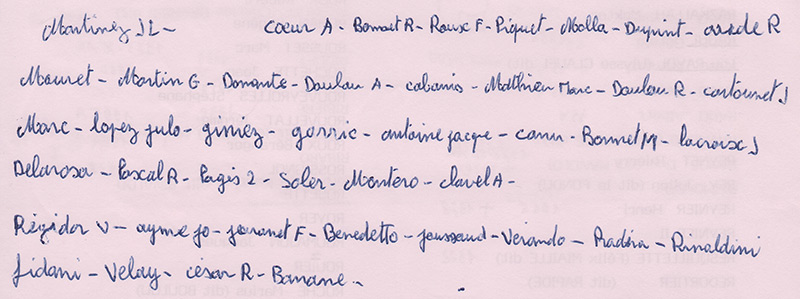 Martinez JL - coeur A - Bonnet R - Roux F - Piquet - Molla - Dupint - assde R
Mauret - Martin G - Donante - Doulau A - cabanis - Matthieu Marc - Doulau R - cartounet J
Marc - lopez julo - gimiez - garric - antoine jacque - camu - Bonnet M - lacroix J
Delarosa - Pascal R - Pagis 2 - Soler - Montero - clavel A -
Régidor V - ayme jo - jouanet F - Benedetto - joussaud - Verando - Radéra - Rinaldini
fidani - Velay - césar R - Banane -